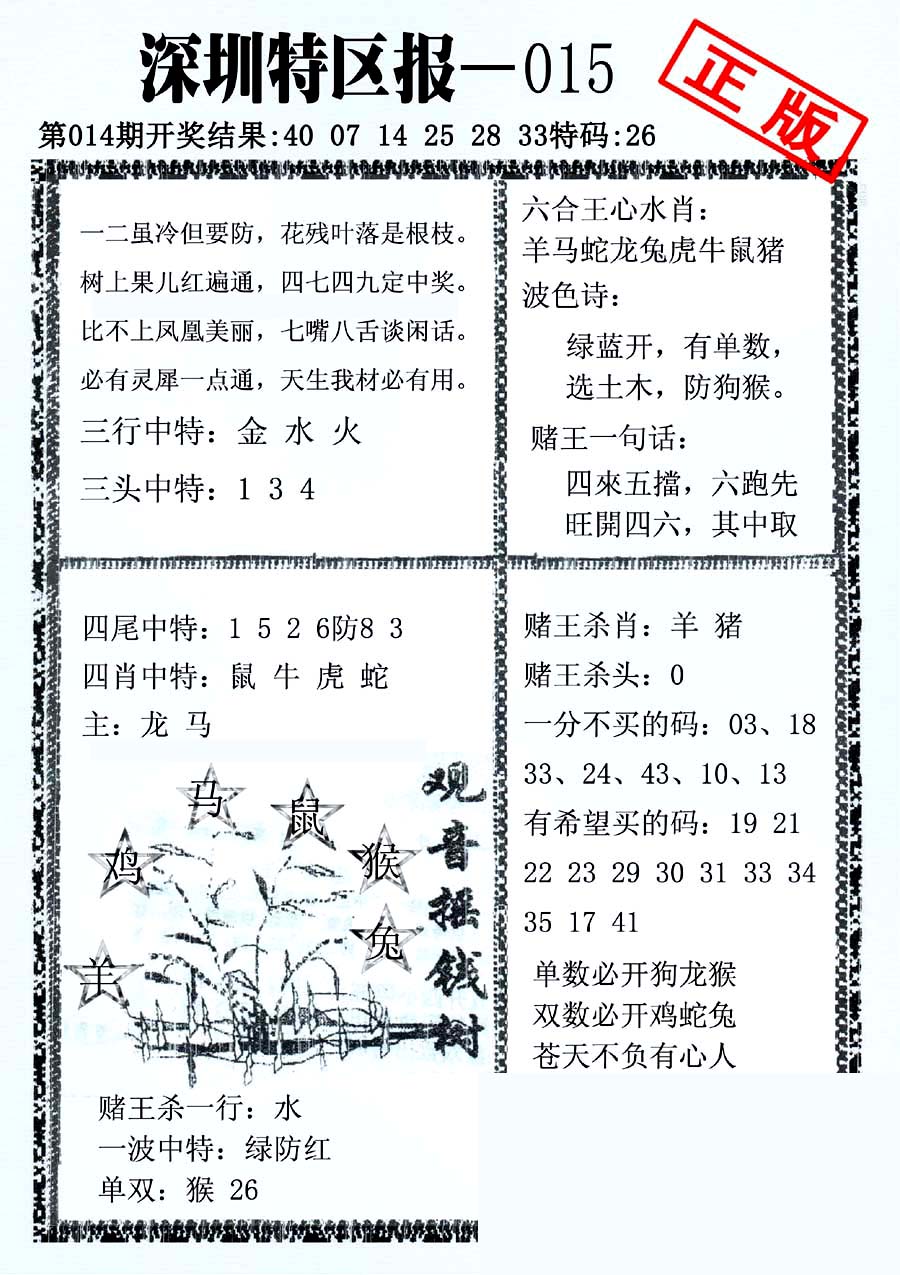 深圳特区报—015
正版
第014期开奖结果:40 07 14 25 28 33特码:26
一二虽冷但要防，花残叶落是根枝。
树上果儿红遍通，四七四九定中奖。
比不上凤凰美丽，七嘴八舌谈闲话。
必有灵犀一点通，天生我材必有用。
三行中特：金 水 火
三头中特：1 3 4
六合王心水肖：
羊马蛇龙兔虎牛鼠猪
波色诗：
绿蓝开，有单数，
选土木，防狗猴。
赌王一句话：
四來五擋，六跑先
旺開四六，其中取
四尾中特：1 5 2 6防8 3
四肖中特：鼠 牛 虎 蛇
主：龙 马
马
鼠
鸡
猴
羊
兔
观音摇钱树
赌王杀一行：水
一波中特：绿防红
单双：猴 26
赌王杀肖：羊 猪
赌王杀头：0
一分不买的码：03、18
33、24、43、10、13
有希望买的码：19 21
22 23 29 30 31 33 34
35 17 41
单数必开狗龙猴
双数必开鸡蛇兔
苍天不负有心人